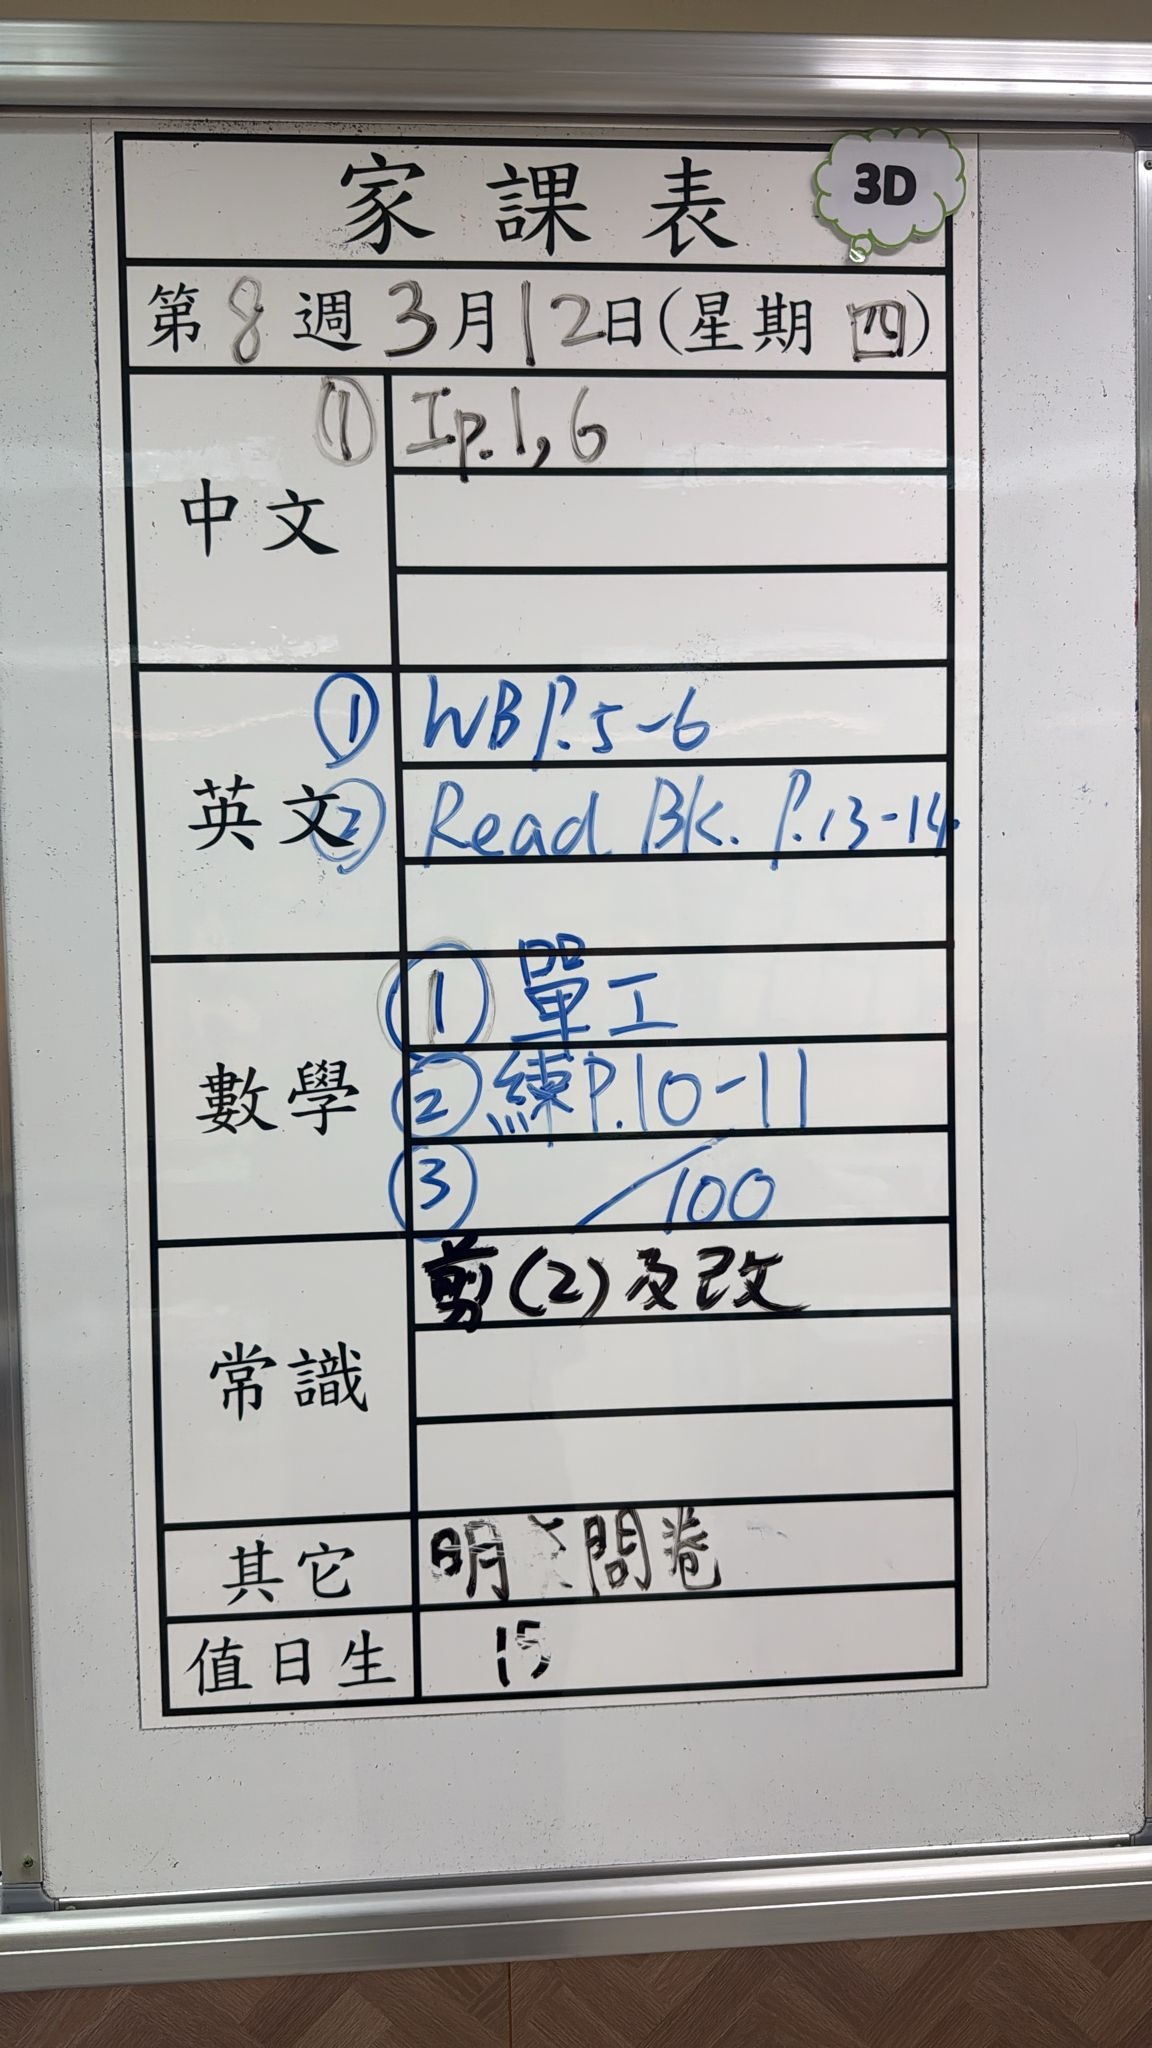 家課表 3D
第8週3月12日(星期四)
中文
① 工p.1,6
英文
① WB P.5-6
② Read Bk. P.13-14.
數學
① 單工
② 練P.10-11
③ /100
常識
剪(2)及改
其它
明 問卷
值日生
15